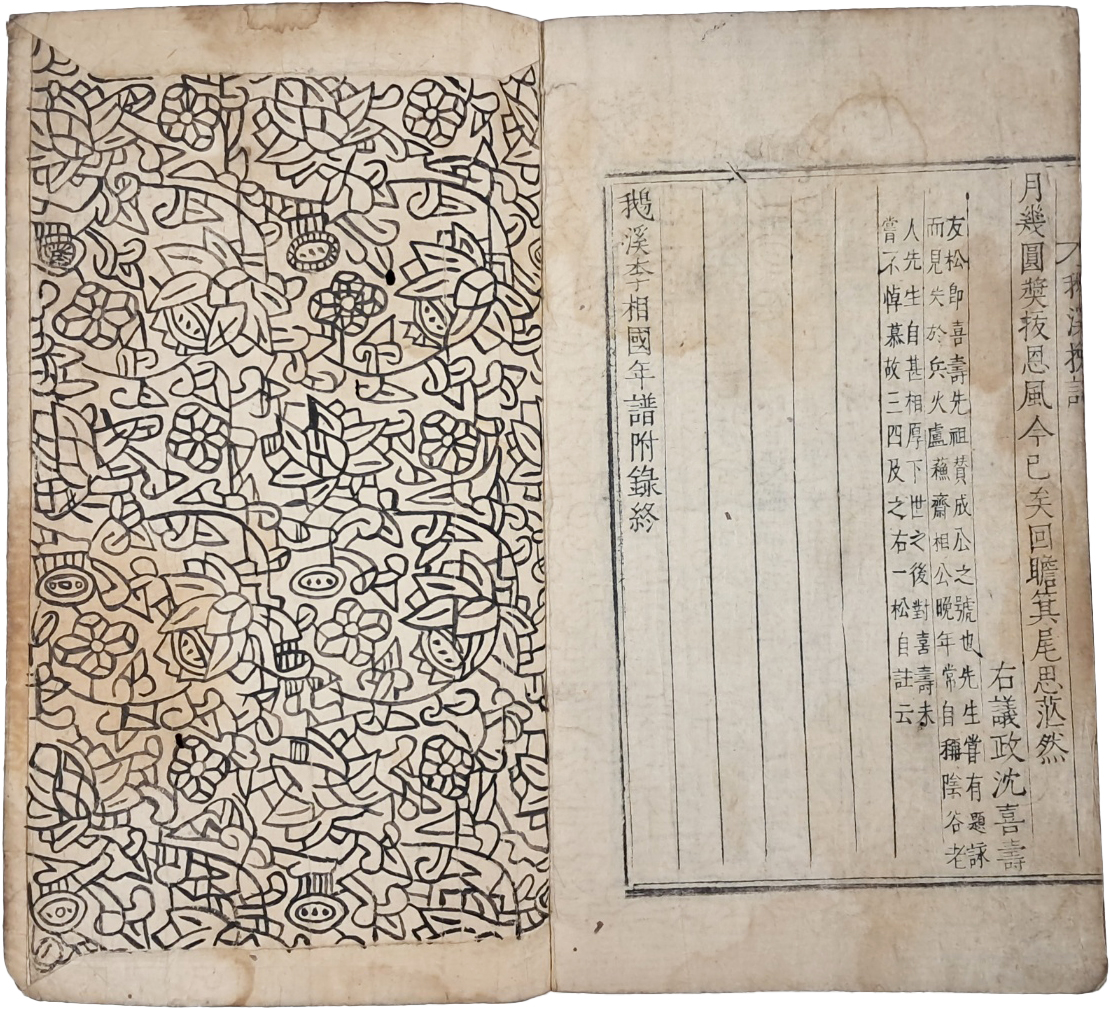 月幾圓奬拔恩風今已矣回瞻箕尾思茫然
右議政沈喜壽
友松即喜壽先祖賛成公之號也先生甞有題詠
而見失於兵火盧蘓齋相公晩年常自稱陰谷老
人先生自甚相厚下世之後對喜壽未
甞不悼慕故三四及之右一松自註云
鵝溪李相國年譜附錄終